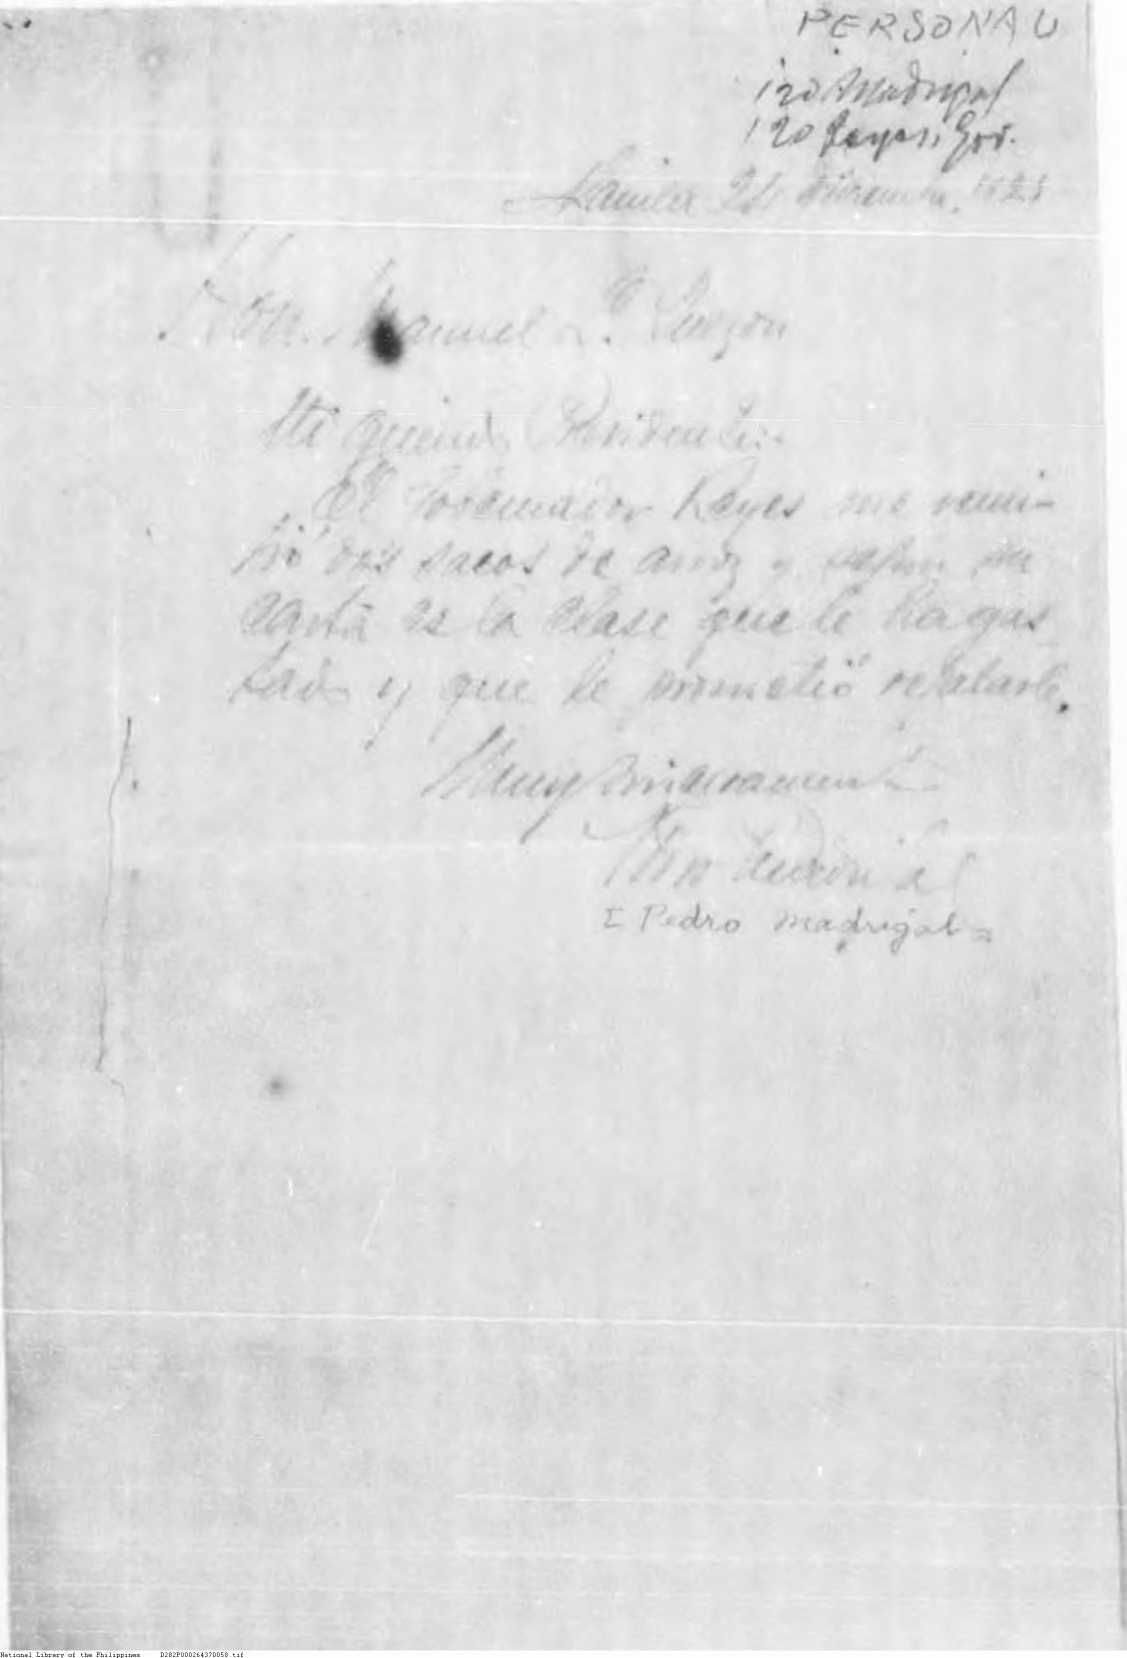 PERSONAL
120 Madrigal
120 Reyes, Gov.
Manila 21 Diciembre, 1921
Hon. Manuel L. Quezon
Mi querido Presidente:-
El Gobernador Reyes me remi-
tió dos sacos de arroz y según su
carta es la clase que le ha gus
tado y que le prometió regalarle.
Muy sinceramente
[Pedro Madrigal]
National Library of the Philippines D282P000264370058.tif